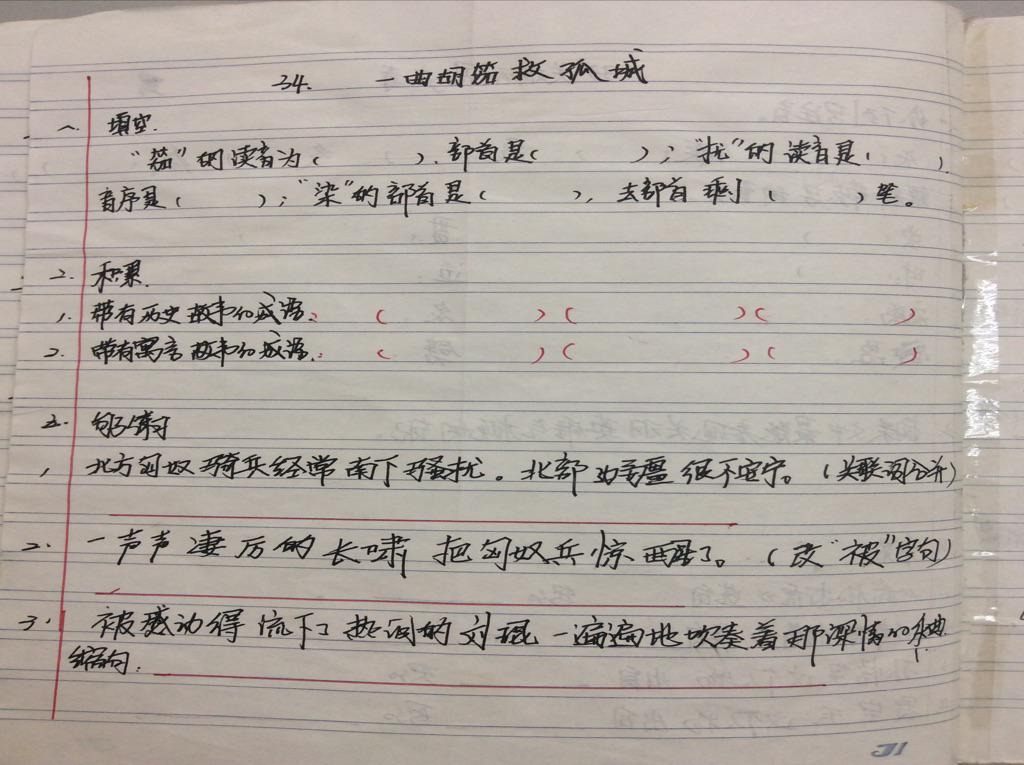 34. 一曲胡笳救孤城
一、填空.
“笳”的读音为( ).部首是( );“扰”的读音是( ).
音序是( );“染”的部首是( ),去部首剩( )笔。
二、积累.
1.带有历史故事的成语: ( )( )( )
2.带有寓言故事的成语: ( )( )( )
三、句练习
1、北方匈奴骑兵经常南下骚扰。北部边疆很不安宁。(关联词合并)
2、一声声凄厉的长啸把匈奴兵惊醒了。(改“被”字句)
3、被感动得流下了热泪的刘琨一遍遍地吹奏着那深情的曲
缩句.
31